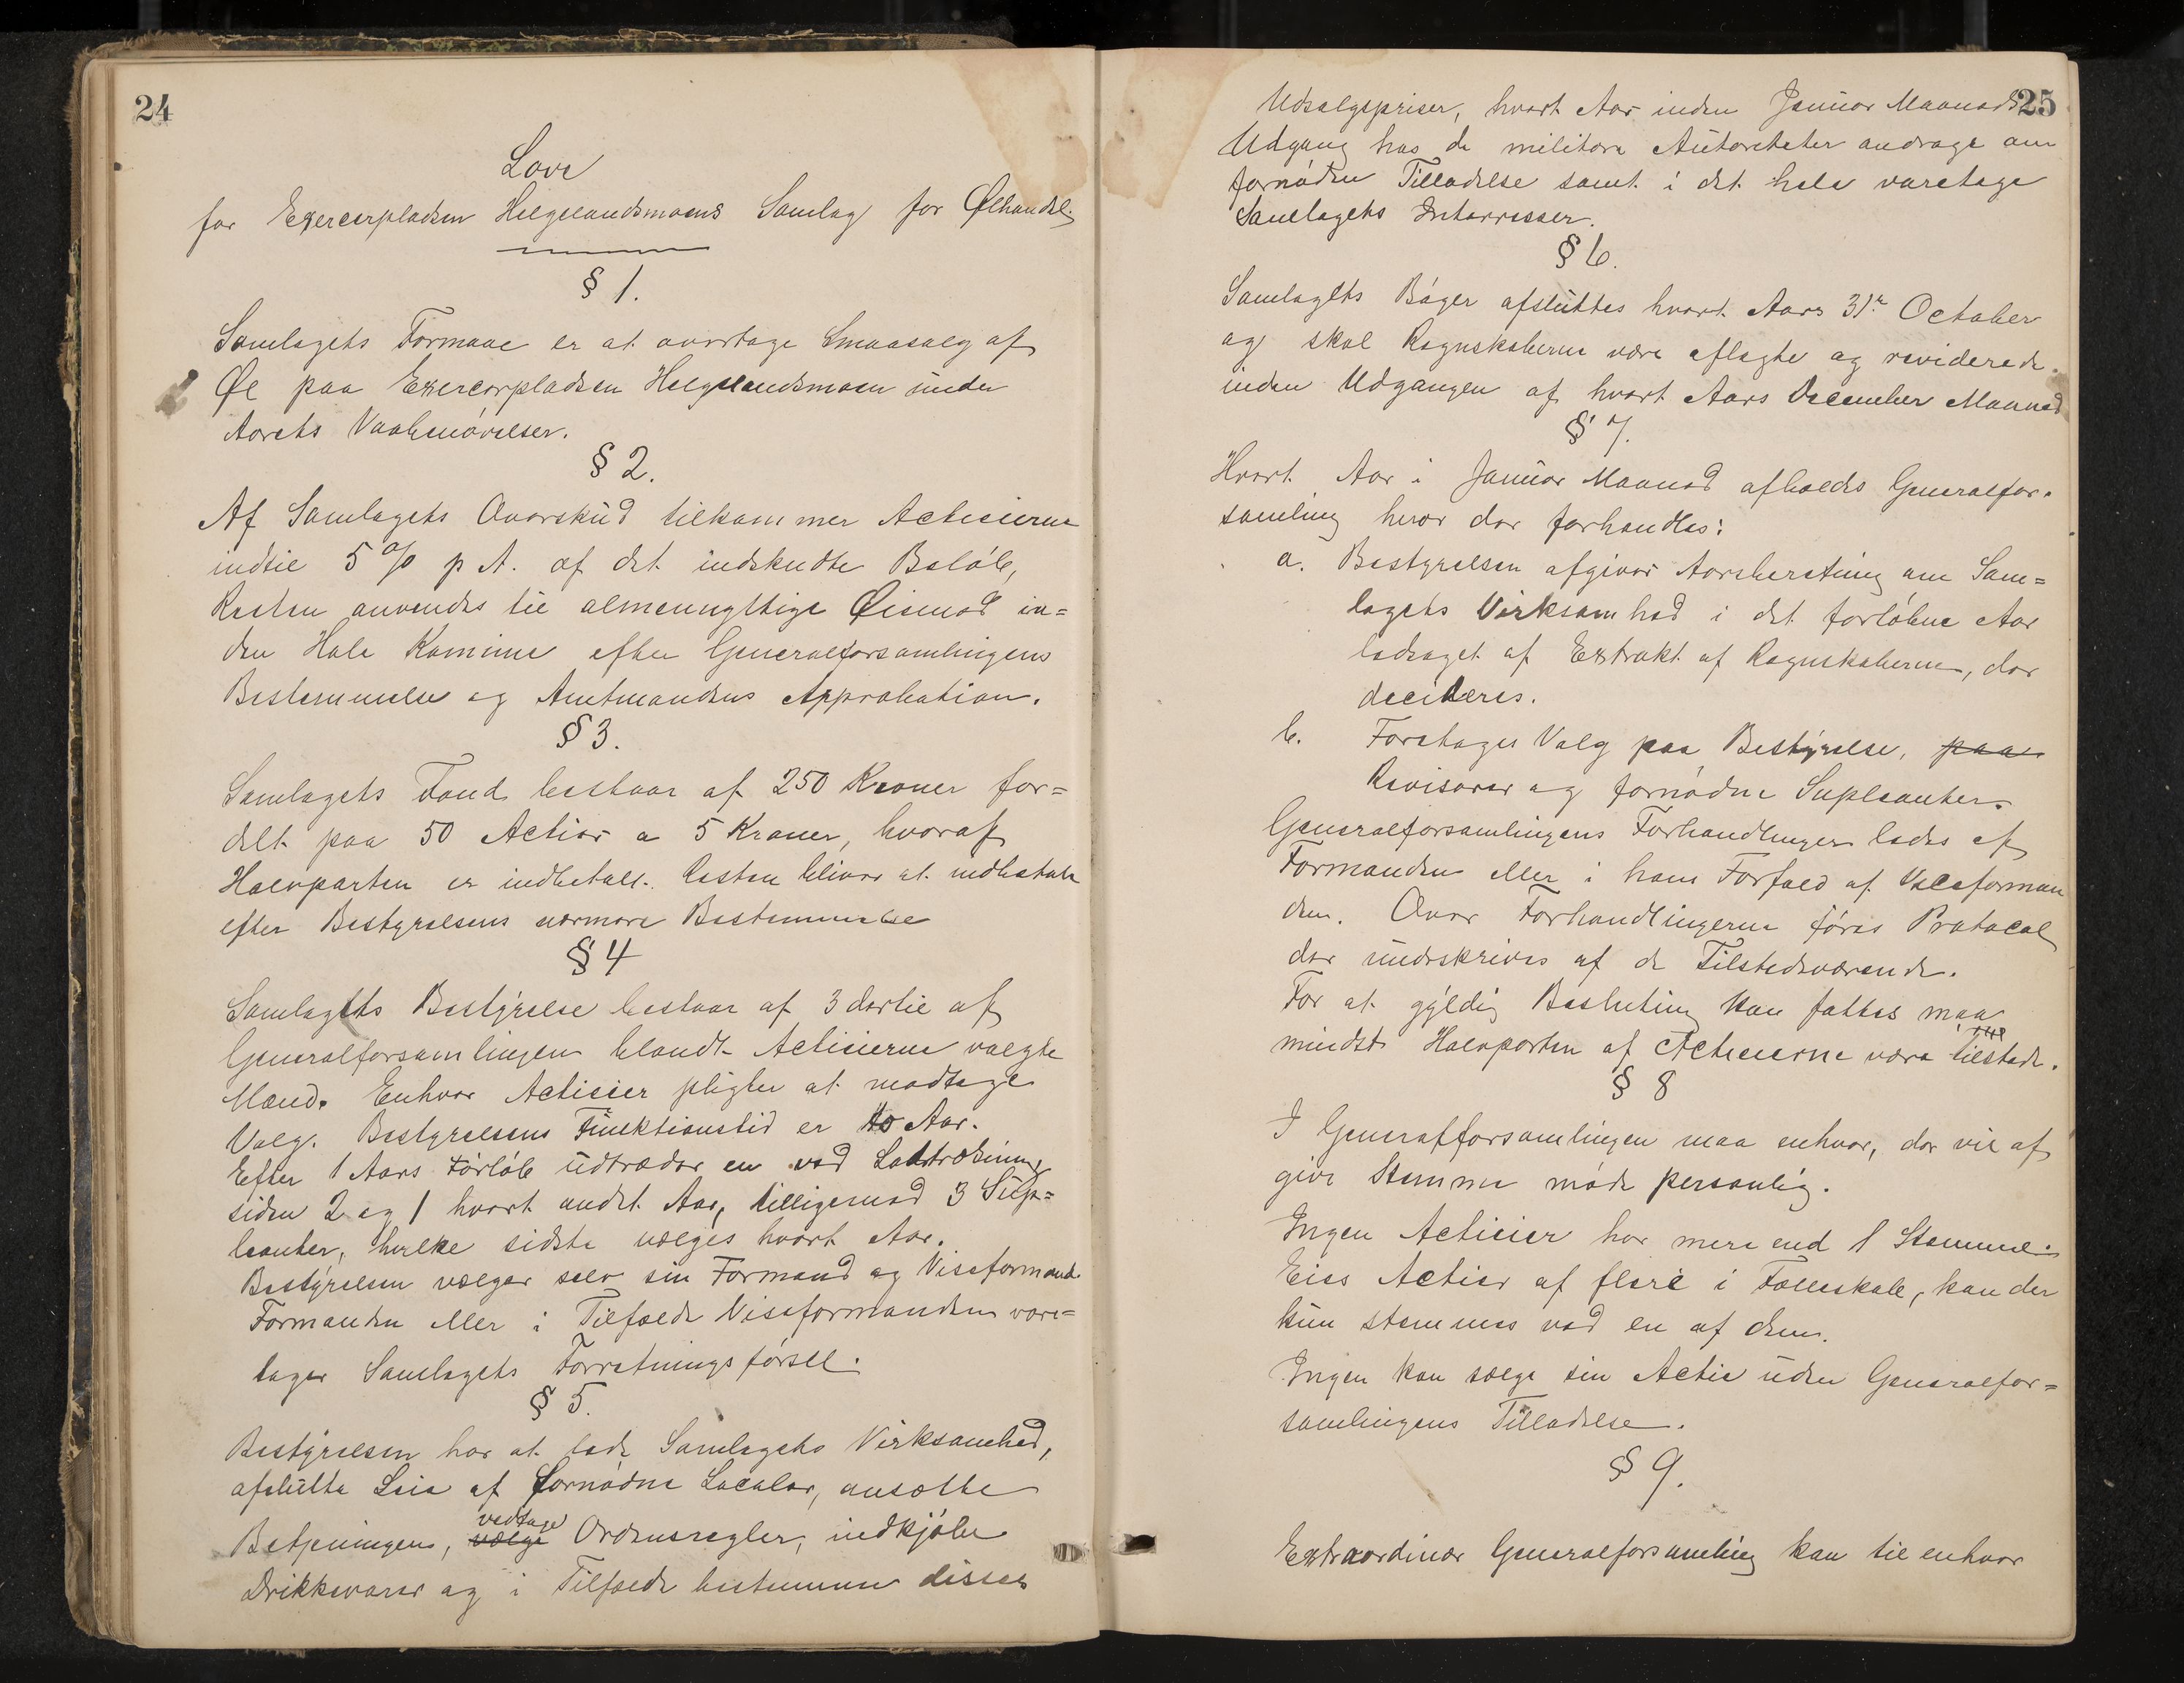 24
Love
for Exercerpladsen Helgelandsmoens Samlag for Ølhandel.
§ 1.
Samlagets Formaal er at overtage Smaasalg af
Øl paa Exercerpladsen Helgelandsmoen under
Aarets Vaabenøvelser.
§ 2.
Af Samlagets Overskud tilkommer Actieierne
indtil 5 % p A. af det indskudte Beløb,
Resten anvendes til almennyttige Øiemed in=
den Hole Kommune efter Generalforsamlingens
Bestemmelse og Amtmandens Approbation.
§ 3.
Samlagets Fond bestaar af 250 Kroner for=
delt paa 50 Actier a 5 Kroner, hvoraf
Halvparten er indbetalt. Resten bliver at indbetale
efter Bestyrelsens nærmere Bestemmelse
§ 4
Samlagets Bestyrelse bestaar af 3 dertil af
Generalforsamlingen blandt Actieierne valgte
Mænd. Enhver Actieier pligter at modtage
Valg. Bestyrelsens Funktionstid er to Aar.
Efter 1 Aars Forløb udtræder en ved Lodtrækning
siden 2 og 1 hvert andet Aar, tilligemed 3 Sup=
leanter, hvilke sidste vælges hvert Aar.
Bestyrelsen vælger selv sin Formand og Viseformand.
Formanden eller i Tilfælde Viseformanden vare=
tager Samlagets Forretningsførsel.
§ 5.
Bestyrelsen har at lede Samlagets Virksomhed,
afslutte Leie af fornødne Localer, ansætte
Betjeningen, vælge vedtage Ordensregler, indkjøbe
Drikkevarer og i Tilfælde bestemme disses
25
Udsalgspriser, hvert Aar inden Januar Maaneds
Udgang hos de militære Autoriteter andrage om
fornøden Tilladelse samt i det hele varetage
Samlagets Interresser.
§ 6.
Samlagets Bøger afsluttes hvert Aars 31te October
og skal Regnskaberne være aflagte og reviderede
inden Udgangen af hvert Aars December Maaned
§ 7.
Hvert Aar i Januar Maaned afholdes Generalfor=
samling hvor der forhandles:
a. Bestyrelsen afgiver Aarsberetning om Sam=
lagets Virksomhed i det forløbne Aar
ledsaget af Extrakt af Regnskaberne, der
decideres.
b. Foretages Valg paa Bestyrelse, paa
Revisorer og fornødne Supleanter.
Generalforsamlingens Forhandlinger ledes af
Formanden eller i hans Forfald af Viseforman
den. Over Forhandlingerne føres Protocol
der underskrives af de Tilstedeværende.
For at gyldig Beslutning kan fattes maa
mindst Halvparten af Actieierne være tilstede.
§ 8
I Generalforsamlingen maa enhver, der vil af
give Stemme møde personlig.
Ingen Actieier har mere end 1 Stemme.
Eies Actier af flere i Fælleskab, kan der
kun stemmes ved en af dem.
Ingen kan sælge sin Actie uden Generalfor=
samlingens Tilladelse.
§ 9.
Extraordinær Generalforsamling kan til enhver